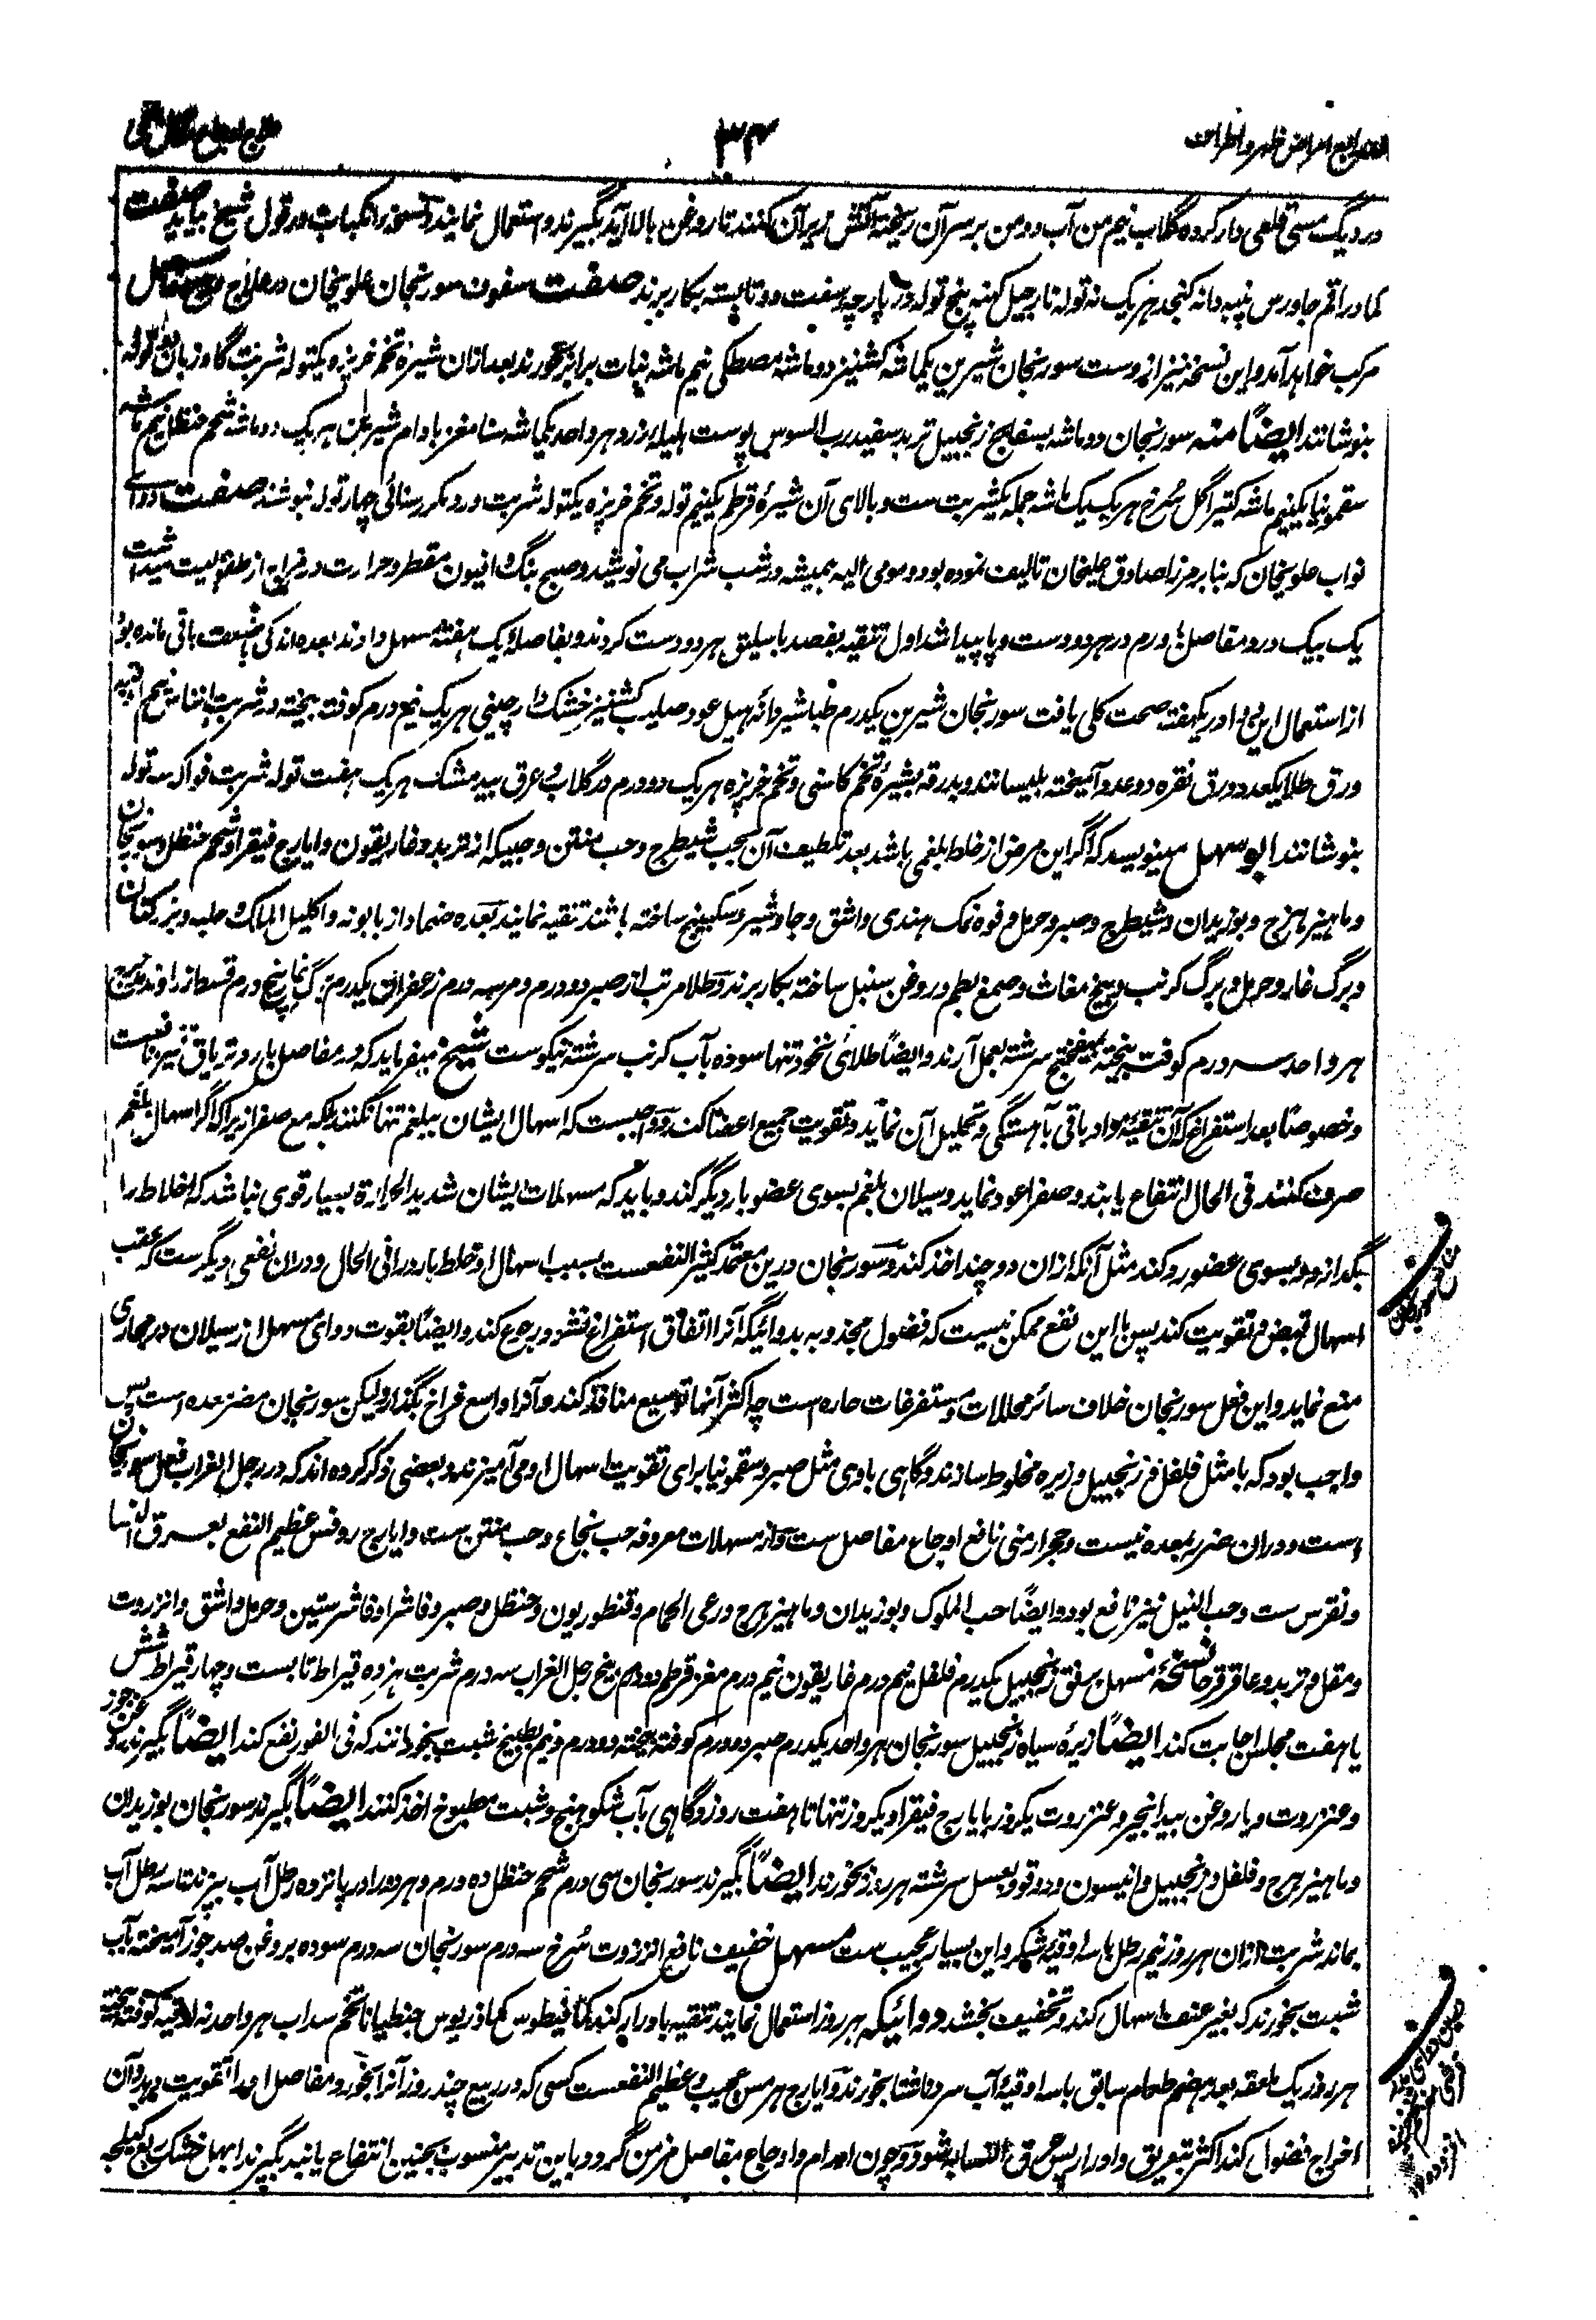 امراض ظهر و اطراف
۳۴
در دیگ مسی قلعی دار کرده گلاب نیم من آب دو من بر سر آن ریخته آتش زیر آن کنند تا روغن بالا آید بگیرند و استعمال نمایند و نسخه در قول شیخ بیاید صفت
کماد راقم جاورس پنبه دانه کنجد هر یک نه توله نارجیل کهنه پنج توله در پارچه سفت دو تا بسته بکار برند صفت سفوف سورنجان علویخان در علاج
مرکب خواهد آمد و این نسخه نیز از وست سورنجان شیرین یکماشه کشنیز دو ماشه مصطکی نیم ماشه نبات برابر بخورند بعد ازان شیره تخم خرپزه یکتوله شربت گاوزبان توله
بنوشانند ایضاً منه سورنجان دو ماشه بسفایج زنجبیل تربد سفید رب السوس پوست هلیله زرد هر واحد یکماشه سنا مغز بادام شیرین هر یک دو ماشه شحم حنظل نیم ماشه
سقمونیا یکنیم ماشه کتیرا گل سرخ هر یک یک ماشه جمله یکشربت ست و بالای آن شیره قرطم یکنیم توله و تخم خرپزه یکتوله شربت ورد مکرر سنائی چهار توله بنوشند صفت دوای
نواب علویخان که بنا بر مرزا صادق علیخان تالیف نموده بود و مومی الیه همیشه در شب شراب می نوشید و صبح بنگ افیون مقطر و حرارت در مزاج از طفولیت میداشت
یک بیک درد مفاصل با ورم در هر دو دست و پا پیدا شد اول تنقیه بفصد باسلیق هر دو دست کردند و بفاصله یک هفته مسهل دادند بعده اندکی باقی مانده بود
از استعمال این دوا در یکهفته صحت کلی یافت سورنجان شیرین یکدرم طباشیر دانه هیل عود صلیب کشنیز خشک دارچینی هر یک نیم درم کوفته بیخته در شربت اننناس نیم اوقیه
ورق طلا یکعدد ورق نقره دو عدد آمیخته بلیسانند و بدرقه بشیره تخم کاسنی و تخم خرپزه هر یک دو درم در گلاب و عرق بیدمشک هر یک هفت توله شربت فواکه سه توله
بنوشانند ابو سهل مینویسد که اگر این مرض از خلط بلغمی باشد بعد تلطیف آن بحب شیطرج و حب منتن و حبیکه از تربد و غاریقون و ایارج فیقرا و شحم حنظل و سورنجان
و ماهیزهرج و بوزیدان و شیطرج و صبر و حرمل و فوه نمک هندی و اشق و جاوشیر و سکبینج ساخته باشند تنقیه نمایند بعده ضماد از بابونه و اکلیل الملک و حلبه و بزر کتان
و برگ غار و حرمل و برگ کرنب و بیخ مغاث و صمغ بطم و روغن سنبل ساخته بکار برند و طلا مرتب از صبر دو درم و مر سه درم زعفران یکدرم برگ پنج درم قسط زراوند
هر واحد سه درم کوفته بیخته بمیفختج سرشته بعمل آرند و ایضاً طلای نخود تنها سوده بآب کرنب سرشته نیکوست شیخ میفرماید که در مفاصل بارد تریاق نیز نافعست
و خصوصاً بعد استفراغ که آن تنقیه مواد باقی بآهستگی و تحلیل آن نماید و تقویت جمیع اعضا کند و واجبست که اسهال ایشان ببلغم تنها نکنند بلکه مع صفرا زیرا که اگر اسهال بلغم
صرف کنند فی الحال انتفاع یابند و صفرا عود نماید و سیلان بلغم بسوی عضو بار دیگر کند و باید که مسهلات ایشان شدید الحرارة بسیار قوی نباشد که اخلاط را
بگدازد و بسوی عضو رد کند مثل آنکه ازان دو چند اخذ کند و سورنجان درین معتمد کثیر النفعست بسبب اسهال او خلط بارد را فی الحال و دران نفعی دیگر ست که عقب
اسهال قبض و تقویت کند پس با این نفع ممکن نیست که فضول مجذوبه بدوائیکه آنرا اتفاق استفراغ نشد رجوع کند و ایضاً بقوت دوای مسهل از سیلان در مجاری
منع نماید و این فعل سورنجان خلاف سائر محللات و مستفرغات حاره است چه اکثر آنها توسیع منافذ کند و آنرا واسع فراخ بگذارد لیکن سورنجان مضر معده است پس
واجب بود که با مثل فلفل و زنجبیل و زیره مخلوط سازند و گاهی باوی مثل صبر و سقمونیا برای تقویت اسهال او می آمیزند و بعضی ذکر کرده اند که در رجل الغراب فعل سورنجان
است و دران ضرر بمعده نیست و حجر ارمنی نافع اوجاع مفاصل ست و از مسهلات معروفه حب نجاح و حب منتن ست و ایارج روفس عظیم النفع بعرق النسا
و نقرس ست و حب النیل نیز نافع بود و ایضاً حب الملوک و بوزیدان و ماهیزهرج و رعی الحمام و قنطوریون و حنظل و صبر و فاشرا و فاشرستین و حرمل و اشق و انزروت
و مقل و تربد و عاقرقرحا نسخه مسهل برفق زنجبیل یکدرم فلفل نیم درم غاریقون نیم درم مغز قرطم دو درم بیخ رجل الغراب سه درم شربت هژده قیراط تا بست و چهار قیراط شش
یا هفت مجلس اجابت کند ایضاً زیره سیاه زنجبیل سورنجان هر واحد یکدرم صبر دو درم کوفته بیخته دو درم و نیم بطبیخ شبت بخورانند که فی الفور نفع کند ایضاً بگیرند روغن جوز
و عنزروت و یا روغن بیدانجیر و عنزروت یکروز با ایارج فیقرا و یکروز تنها تا هفت روز و گاهی بآب شکوهنج و شبت مطبوخ اخذ کنند ایضاً بگیرند سورنجان بوزیدان
و ماهیزهرج و فلفل و زنجبیل و انیسون و دوقو بعسل سرشته هر روز بخورند ایضاً بگیرند سورنجان سی درم شحم حنظل ده درم و هر دو را در پانزده رطل آب بپزند تا سه رطل آب
بماند شربت ازان هر روز نیم رطل با سه اوقیه شکر و این بسیار عجیب ست مسهل خفیف نافع انزروت سرخ سه درم سورنجان سه درم سوده بروغن صد جوز آمیخته بآب
شبت بخورند که بغیر عنف اسهال کند و تخفیف بخشد دوائیکه هر روز استعمال نمایند تنقیه باورار کند کمافیطوس کماذریوس جنطیانا تخم سداب هر واحد نه اوقیه کوفته بیخته
هر روز یک ملعقه بعد هضم طعام سابق با سه اوقیه آب سرد ناشتا بخورند و ایارج هرمس عجیب و عظیم النفعست کسی که در ربیع چند روز آنرا بخورد مفاصل او را تقویت دهد و آن
اخراج فضول کند اکثر بتعریق و ادرار پس عرق النسا به شود و چون اورام و اوجاع مفاصل مزمن گردد و باین تدبیر منسوب بجنین انتفاع یابند بگیرند ابهل خشک ربع کیلجه